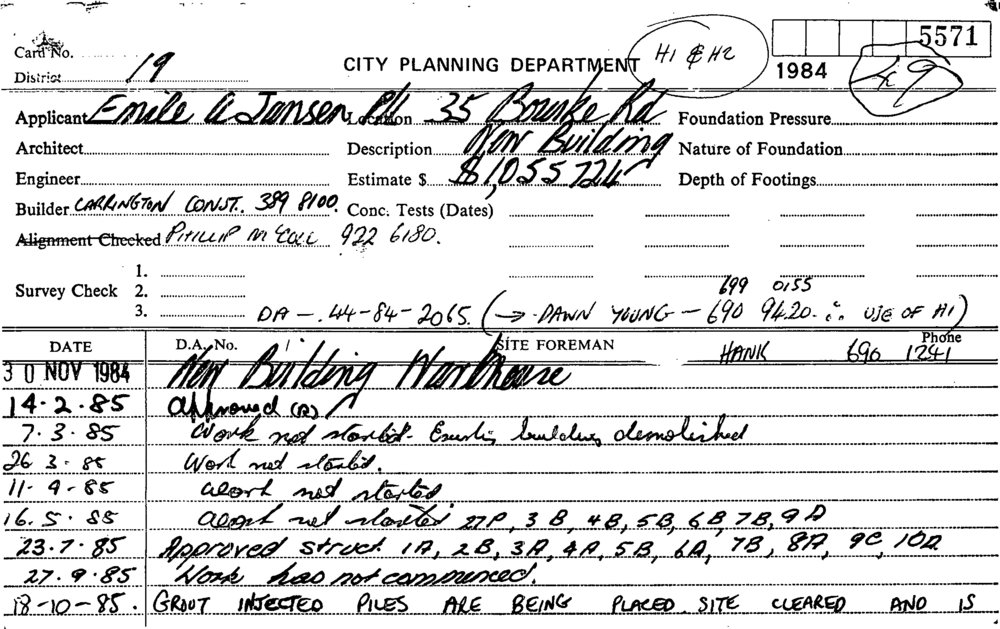 Card No. 5571
District 19 CITY PLANNING DEPARTMENT H1 & H2 1984 49
Applicant Emile A Jansen P/L Location 35 Bourke Rd Foundation Pressure
Architect Description New Building Nature of Foundation
Engineer Estimate $ $1,055724 Depth of Footings
Builder CARRINGTON CONST. 389 8100. Conc. Tests (Dates)
Alignment Checked PHILLIP 922 6180.
1.
Survey Check 2. 699 0155
3. DA-.44-84-2065. (→ DAWN YOUNG - 690 9420. ∴ USE OF H1)
DATE D.A. No. SITE FOREMAN HANK Phone 690 1241
30 NOV 1984 New Building Warehouse
14.2.85 Approved (A)
7.3.85 Work not started - Existing building demolished
26 3.85 Work not started.
11-4-85 Work not started
16.5.85 Work not started 27P, 3B, 4B, 5B, 6B, 7B, 9A
23.7.85 Approved struct 1A, 2B, 3A, 4A, 5B, 6A, 7B, 8A, 9C, 10A
27.9.85 Work has not commenced.
18-10-85. GROUT INJECTED PILES ARE BEING PLACED SITE CLEARED AND IS